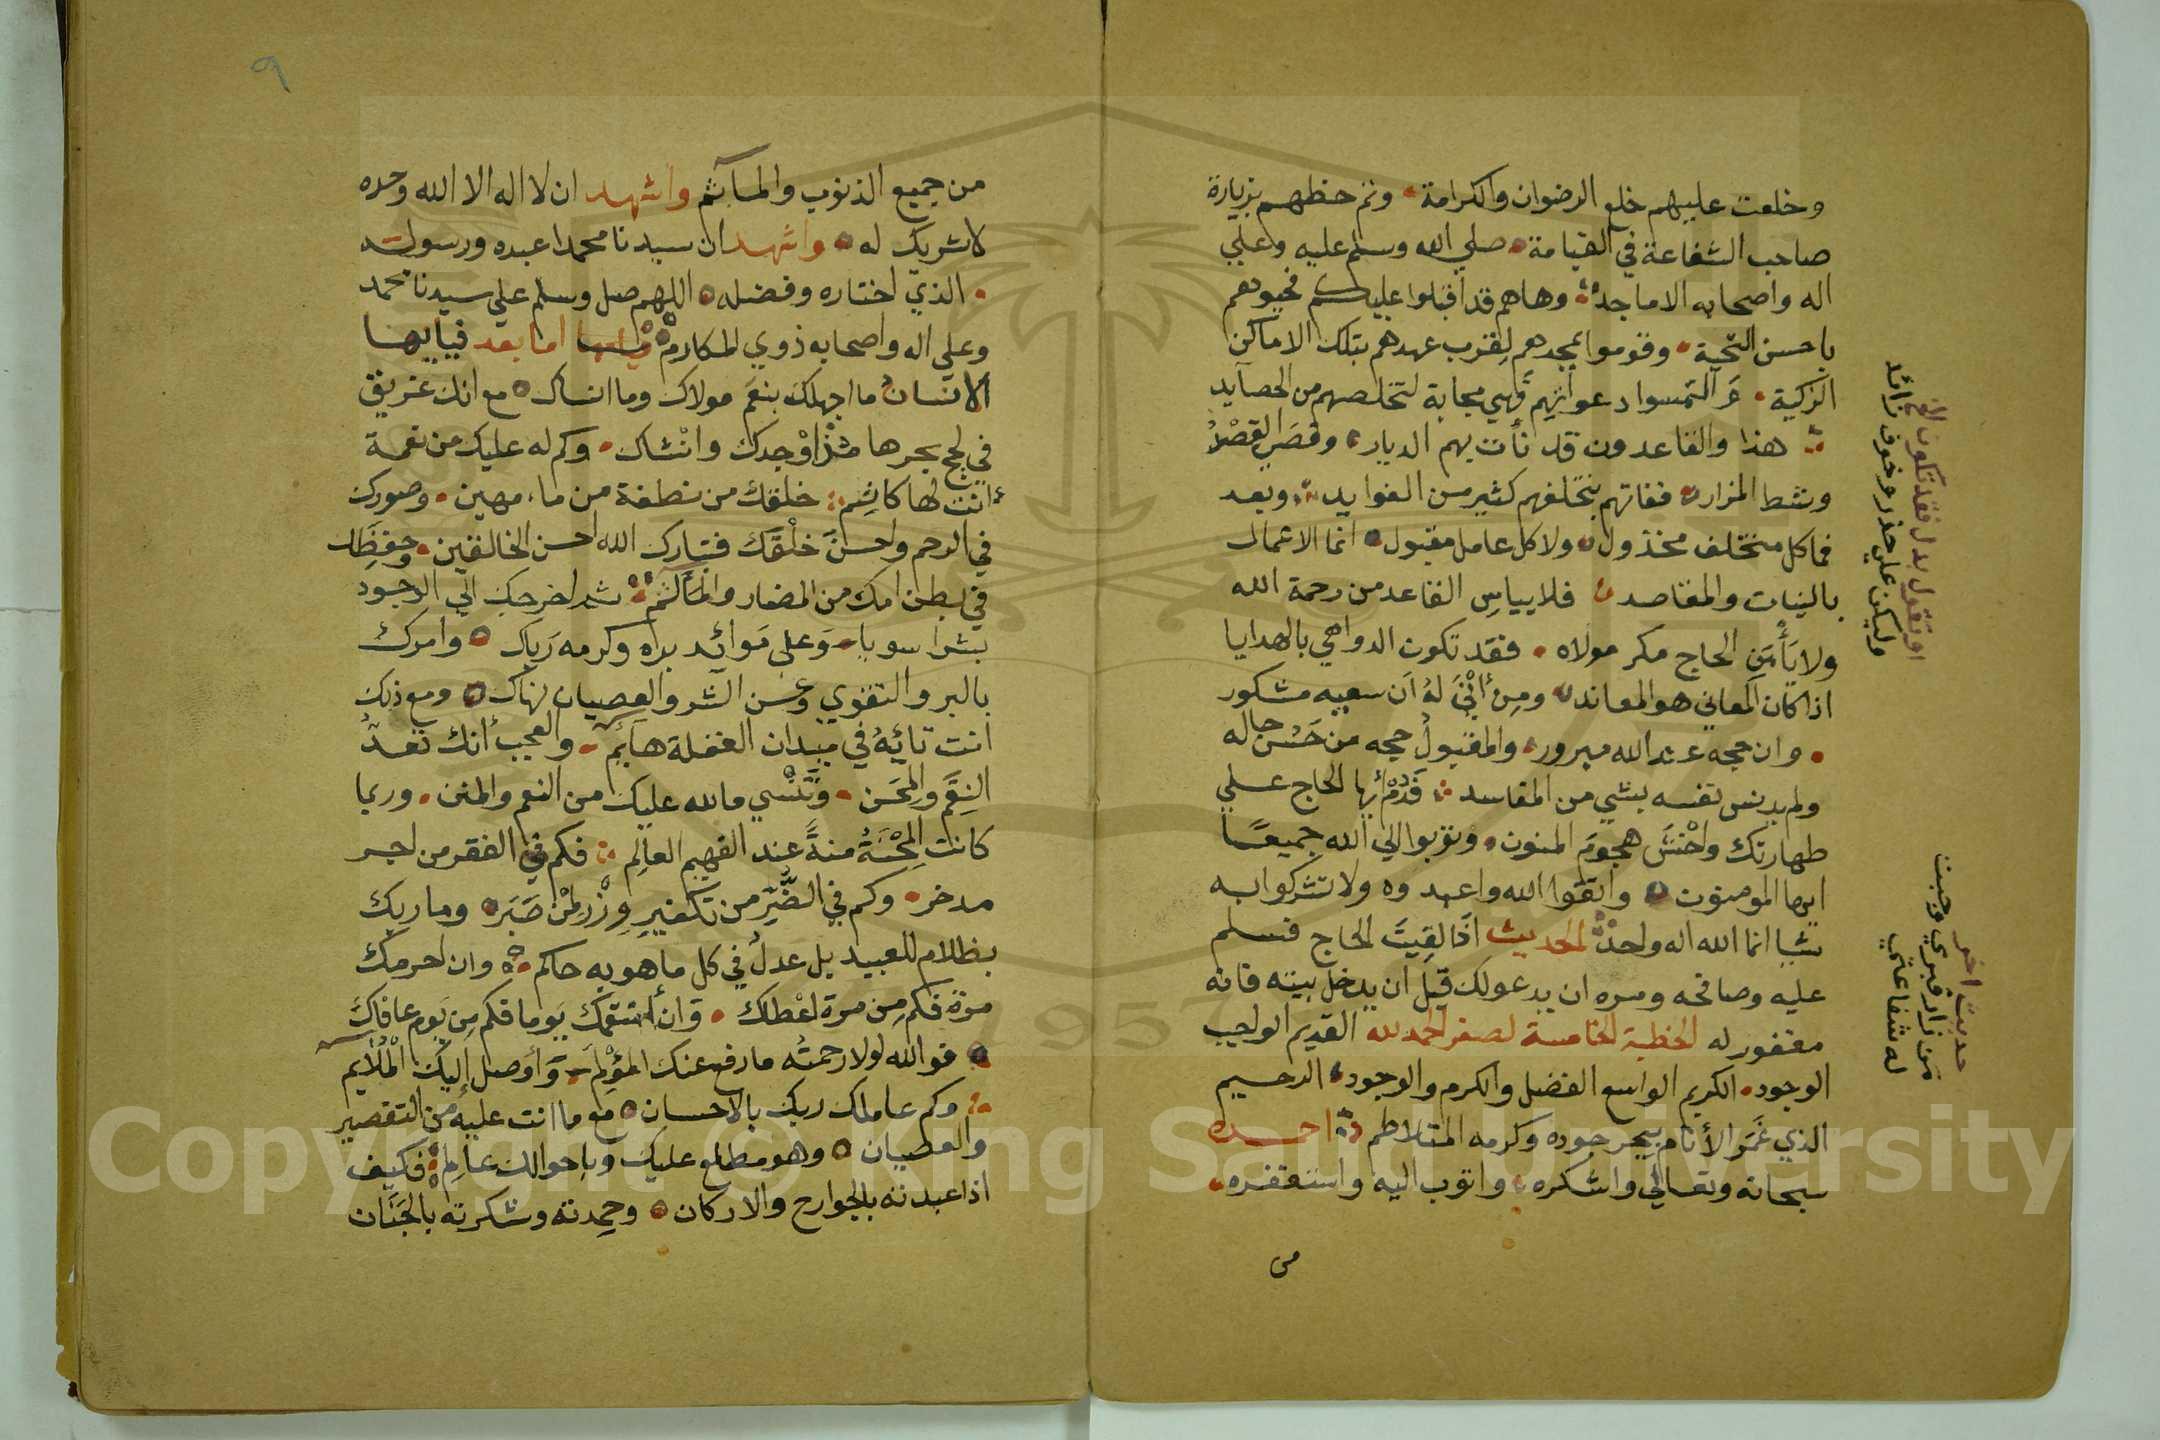 وخلعت عليهم خلع الرضوان والكرامة وتم حظهم بزيارة
صاحب الشفاعة في القيامة صلي الله وسلم عليه وعلي
اله واصحابه الاماجد وهاهم قد اقبلوا عليكم فحيوهم
باحسن التحية وقوموا بمجدهم لقرب عهدهم بتلك الاماكن
الزكية والتمسوا دعواتهم فهي مجابة لتخلصهم من الحصايد
هذا والقاعدون قد نأت بهم الديار وقصر القصد
وشط المزار ففاتهم بتخلفهم كثير من الفوايد وبعد
فما كل متخلف مخذول ولا كل عامل مقبول انما الاعمال
بالنيات والمقاصد فلا ييأس القاعد من رحمة الله
ولا يأمن الحاج مكر مولاه فقد تكون الدواهي بالهدايا
اذا كان المعاني هو المعاند ومن أين له ان سعيه مشكور
وان حجه عند الله مبرور والمقبول حجه من حسن حاله
ولم يدنس نفسه بشي من المفاسد فدم أيها الحاج علي
طهارتك واخش هجوم المنون وتوبوا الي الله جميعا
ايها المومنون واتقوا الله واعبدوه ولا تشركوا به
شيا انما الله اله واحد الحديث اذا لقيت الحاج فسلم
عليه وصافحه ومره ان يدعو لك قبل ان يدخل بيته فانه
مغفور له الخطبة الخامسة لصفر الحمد لله القديم الواجب
الوجود الكريم الواسع الفضل والكرم والوجود الرحيم
الذي غمر الأنام ببحر جوده وكرمه المتلاطم احمده
سبحانه وتعالي واشكره واتوب اليه واستغفره
من
او تقول بدل فقد تكون الخ
وليكن علي حذر وخوف زائد
حديث اخر
من زار قبري وجبت
له شفاعتي
٩
من جميع الذنوب والمآثم واشهد ان لا اله الا الله وحده
لا شريك له واشهد ان سيدنا محمدا عبده ورسوله
الذي اختاره وفضله اللهم صل وسلم علي سيدنا محمد
وعلي اله واصحابه ذوي المكارم اما بعد فيا ايها
الانسان ما اجهلك بنعم مولاك وما انساك مع انك غريق
في لجج بحرها مذ اوجدك وانشاك وكم له عليك من نعمة
انت لها كاتم خلقك من نطفة من ماء مهين وصورك
في الرحم واحسن خلقك فتبارك الله احسن الخالقين وحفظك
في بطن امك من المضار والمآثم ثم اخرجك الي الوجود
بشرا سويا وعلي موائد بره وكرمه رباك وامرك
بالبر والتقوي وعن الشر والعصيان نهاك ومع ذلك
انت تائه في ميدان الغفلة هائم والعجب أنك تعد
النقم والمحن وتنسي ما لله عليك من النعم والمنن وربما
كانت المحنة منة عند الفهيم العالم فكم في الفقر من اجر
مدخر وكم في الضر من تكفير وزر لمن صبر وما ربك
بظلام للعبيد بل عدل في كل ما هو به حاكم وان احرمك
مرة فكم من مرة اعطاك وان اسقمك يوما فكم من يوم عافاك
فوالله لولا رحمته ما رفع عنك المؤلم وأوصل إليك الملايم
وكم عاملك ربك بالاحسان مع ما انت عليه من التقصير
والعصيان وهو مطلع عليك وباحوالك عالم فكيف
اذا عبدته بالجوارح والاركان وحمدته وشكرته بالجنان
Copyright © King Saud University
1957